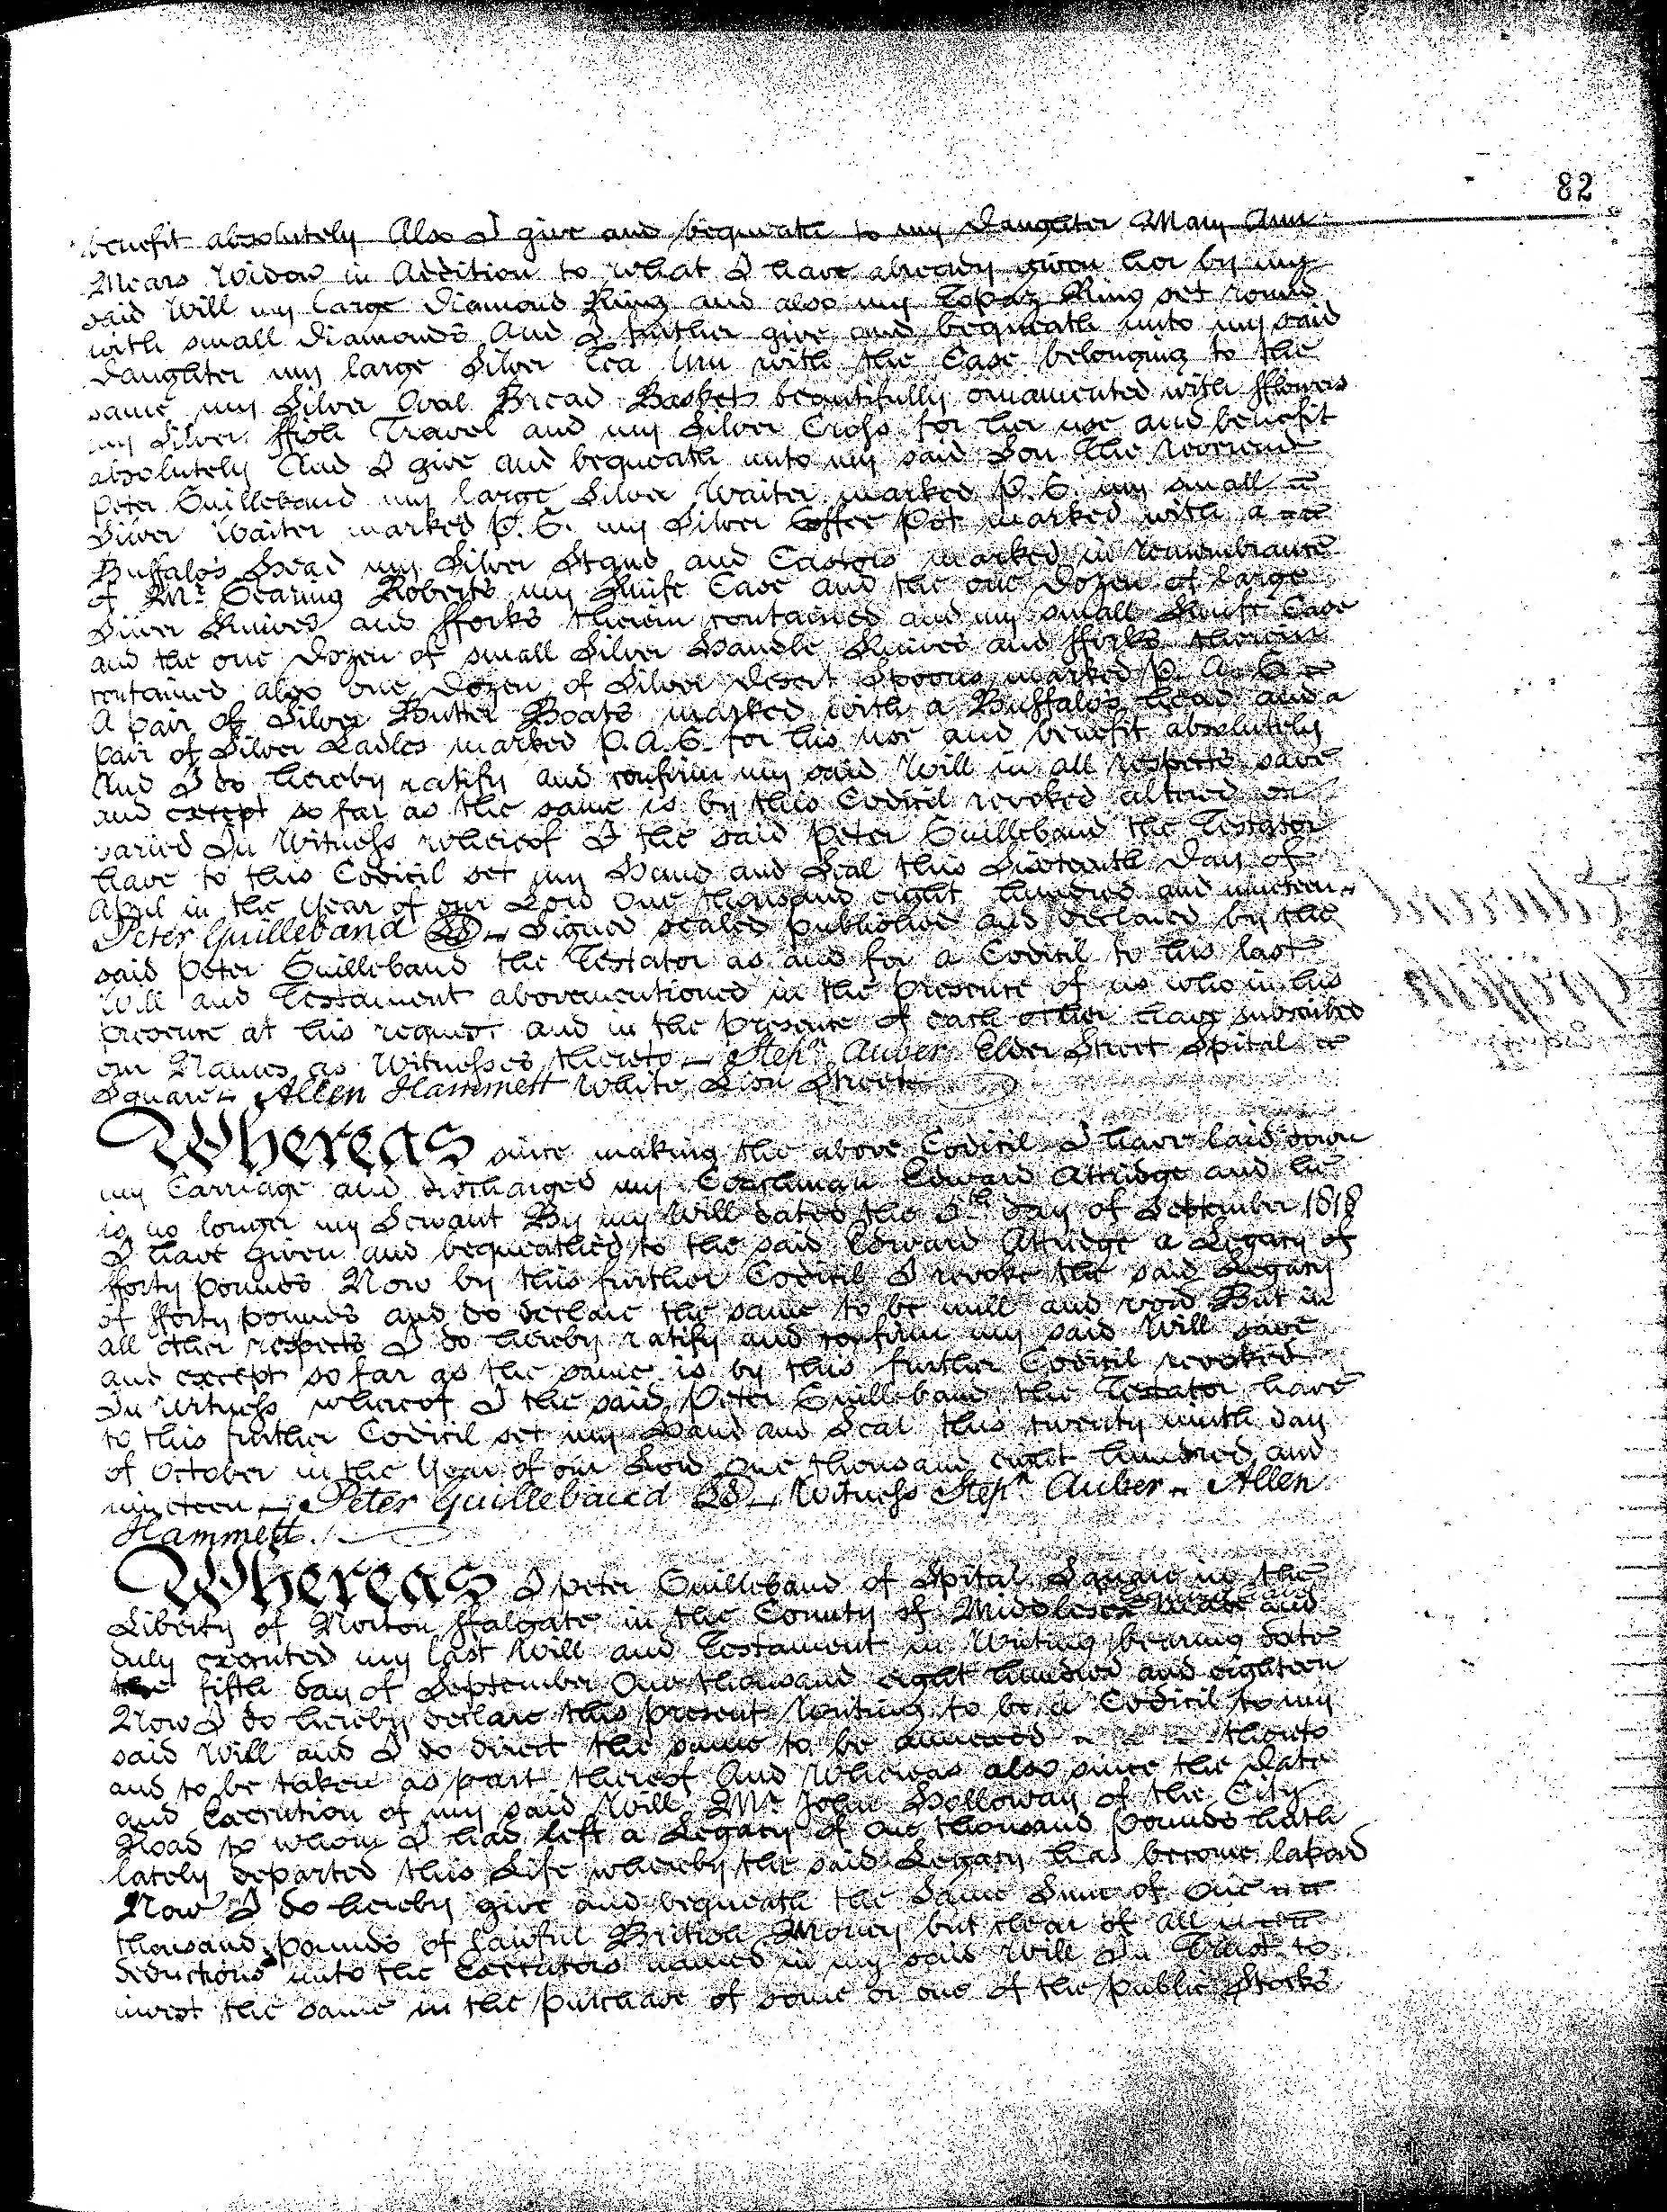 82
benefit absolutely Also I give and bequeath to my Daughter Mary Ann
Mears Widow in Addition to what I have already given her by my
said Will my large Diamond Ring and also my Topaz Ring set round
with small Diamonds And I further give and bequeath unto my said
Daughter my large Silver Tea Urn with the Case belonging to the
same my Silver Oval Bread Basket beautifully ornamented with fflowers
my Silver ffish Trowel and my Silver Cross for her use and benefit
absolutely And I give and bequeath unto my said Son The Reverend
Peter Guillebaud my large Silver Waiter marked P. G. my small
Silver Waiter marked P. G. my Silver Coffee Pot marked with a
Buffalos Head my Silver Stand and Castors marked in remembrance
of Mr. Gearing Roberts my Knife Case and the one Dozen of large
Silver Knives and fforks therein contained and my small Knife Case
and the one Dozen of small Silver Handle Knives and fforks therein
contained also one Dozen of Silver Desert Spoons marked P. A. G
A pair of Silver Butter Boats marked with a Buffalos head and a
pair of Silver Ladles marked P. A. G. for his use and benefit absolutely
And I do hereby ratify and confirm my said Will in all respects save
and except so far as the same is by this Codicil revoked altered or
varied In Witness whereof I the said Peter Guillebaud the Testator
have to this Codicil set my Hand and Seal this Sixteenth Day of
April in the Year of our Lord One thousand eight hundred and nineteen
Peter Guillebaud LS Signed sealed published and declared by the
said Peter Guillebaud the Testator as and for a Codicil to his last
Will and Testament abovementioned in the presence of us who in his
presence at his request and in the presence of each other have subscribed
our Names as Witnesses thereto Stepn. Auber Elder Street Spital
Square Allen Hammett White Lion Street
Whereas since making the above Codicil I have laid down
my Carriage and discharged my Coachman Edward Attridge and he
is no longer my Servant By my Will dated the 5th day of September 1818
I have given and bequeathed to the said Edward Attridge a Legacy of
fforty pounds Now by this further Codicil I revoke the said Legacy
of fforty pounds and do declare the same to be null and void But in
all other respects I do hereby ratify and confirm my said Will save
and except so far as the same is by this further Codicil revoked
In Witness whereof I the said Peter Guillebaud the Testator have
to this further Codicil set my Hand and Seal this twenty ninth day
of October in the Year of our Lord One thousand eight hundred and
nineteen Peter Guillebaud LS Witness Stepn. Auber Allen
Hammett.
Whereas I Peter Guillebaud of Spital Square in the
Liberty of Norton ffalgate in the County of Middlesex made and
duly executed my last Will and Testament in Writing bearing date
the fifth day of September One thousand eight hundred and eighteen
Now I do hereby declare this present Writing to be a Codicil to my
said Will and I do direct the same to be annexed thereto
and to be taken as part thereof And Whereas also since the Date
and Execution of my said Will Mr. John Holloway of the City
Road to whom I had left a Legacy of One thousand pounds hath
lately departed this Life whereby the said Legacy has become lapsed
Now I do hereby give and bequeath the Same Sum of One
thousand pounds of lawful British Money but clear of all
deductions unto the Executors named in my said Will In Trust to
invest the same in the purchase of some or one of the public Stocks